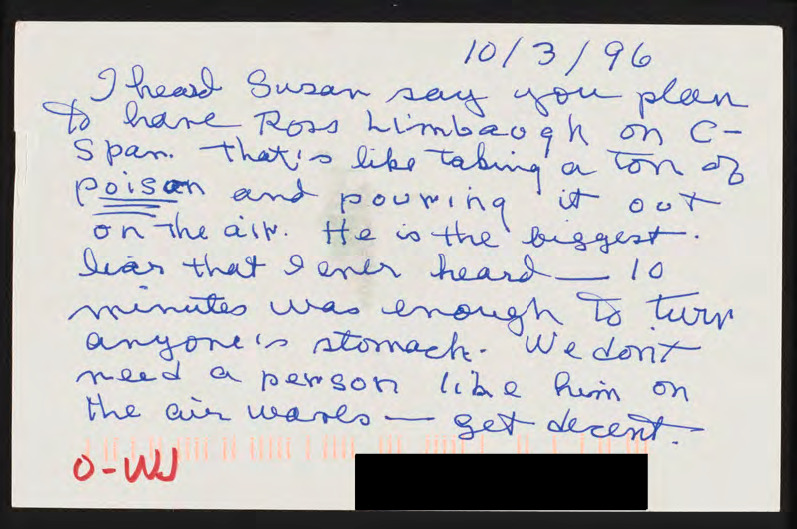 10/3/96
I heard Susan say you plan
to have Ross Limbaugh on C-
Span. That's like taking a ton of
poison and pouring it out
on the air. He is the biggest
liar that I ever heard — 10
minutes was enough to turn
anyone's stomach. We don't
need a person like him on
the air waves — get decent.
O-WJ